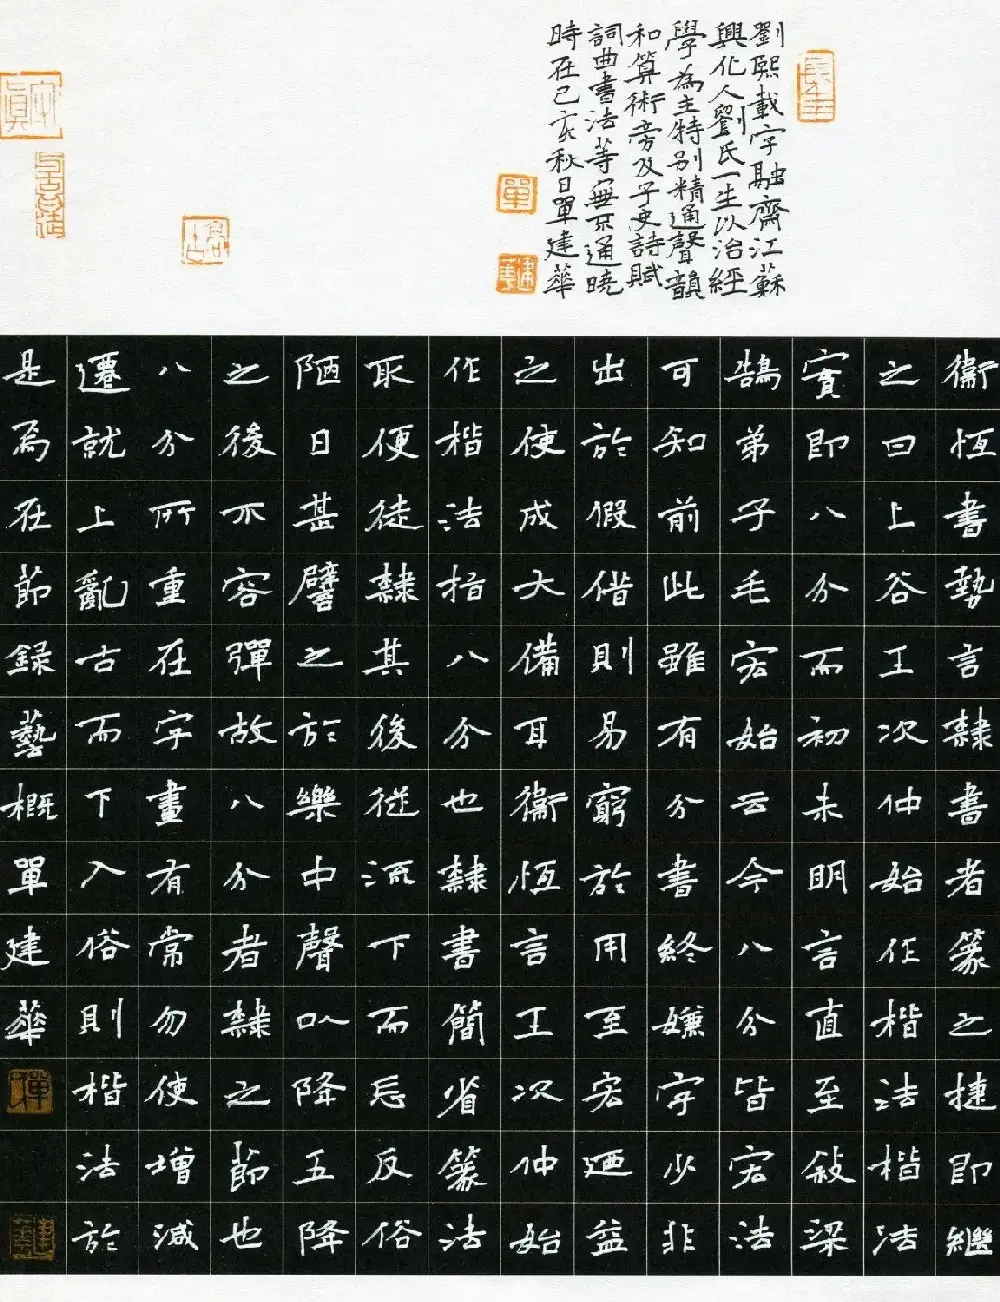 劉熙載字融齋江蘇
興化人劉氏一生以治經
學為主特别精通聲韻
和算術旁及子史詩賦
詞曲書法等無不通曉
時在己亥秋日單建華
單
建華
衞恆書勢言隸書者篆之捷即繼
之曰上谷王次仲始作楷法楷法
實即八分而初未明言直至敍梁
鵠弟子毛宏始云今八分皆宏法
可知前此雖有分書終嫌字少非
出於假借則易窮於用至宏迺益
之使成大備耳衞恆言王次仲始
作楷法楷八分也隸書簡省篆法
取便徒隸其後從流下而忘反俗
陋日甚譬之於樂中聲以降五降
之後不容彈故八分者隸之節也
八分所重在字畫有常勿使增減
遷就上亂古而下入俗則楷法於
是為在節録藝概單建華